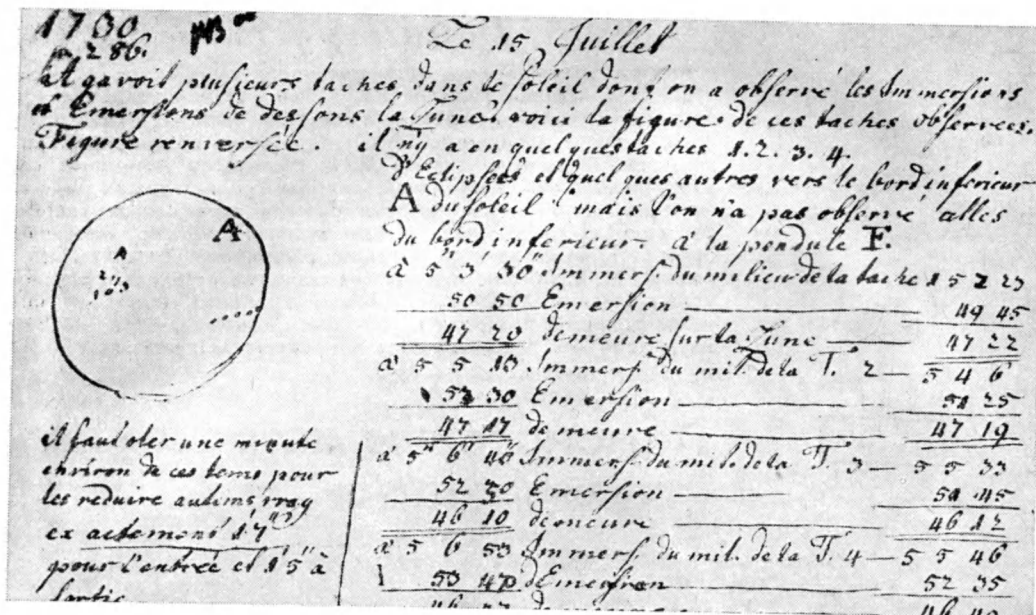 1730
286.
Le 15 Juillet
il y avoit plusieurs taches dans le soleil dont on a observé les Immersions
et Emersions de dessous la Lune voici la figure de ces taches observees.
Figure renversée. il n'y a eu quelques taches 1. 2. 3. 4.
d'Eclipsées et quelques autres vers le bord inferieur
A du soleil mais l'on n'a pas observé celles
du bord inferieur. à la pendule F.
A
A
à 5 3 30 Immers. du milieu de la tache 1 5 2 23
50 50 Emersion 49 45
47 20 demeure sur la Lune 47 22
à 5 5 13 Immers. du mil. de la T. 2 5 4 6
52 30 Emersion 51 25
47 17 demeure 47 19
à 5 6 40 Immers. du mil. de la T. 3 5 5 33
52 50 Emersion 51 45
46 10 demeure 46 12
à 5 6 53 Immers. du mil. de la T. 4 5 5 46
53 40 Emersion 52 35
il faut oter une minute
environ de ces tems pour
les reduire au tems vray
exactement 1' 7"
pour l'entrée et 1' 5" à